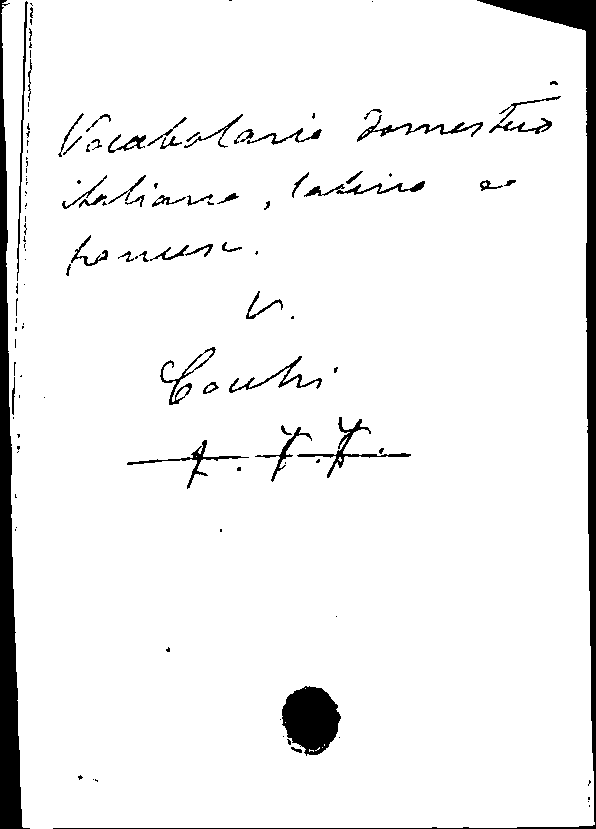 Vocabolario domestico
italiano, latino e
francese.
V.